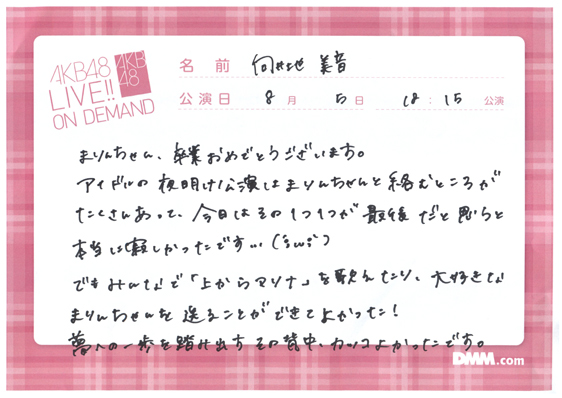 AKB48
LIVE!!
ON DEMAND
AKB
48
名前 向井地 美音
公演日 8月 5日 18:15 公演
まりんちゃん、卒業おめでとうございます。
アイドルの夜明け公演はまりんちゃんと絡むところが
たくさんあって、今日はその1つ1つが最後だと思うと
本当に寂しかったです…(´;ω;`)
でもみんなで「上からマリナ」を歌えたり、大好きな
まりんちゃんを送ることができてよかった!
夢への一歩を踏み出す その背中、カッコよかったです。
DMM.com